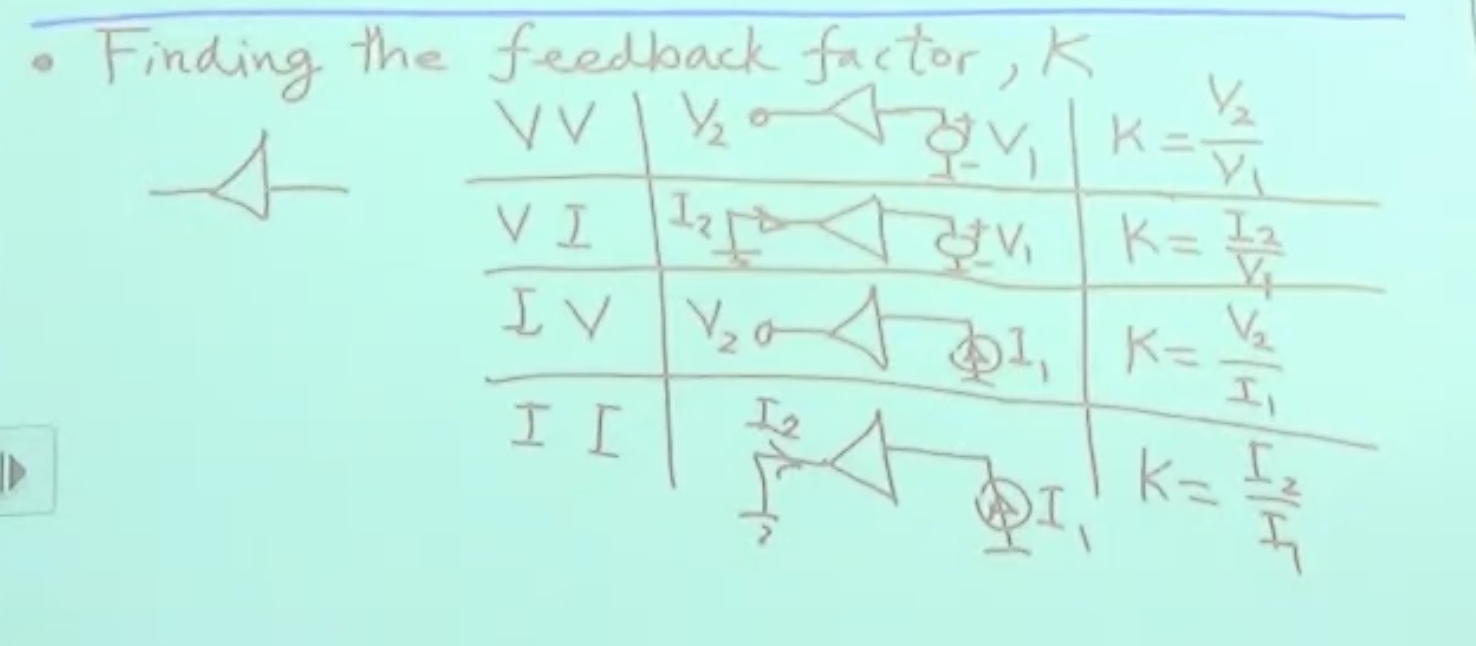 • Finding the feedback factor, K
VV V₂ + - V₁ K = V₂/V₁
VI I₂ + - V₁ K = I₂/V₁
IV V₂ I₁ K = V₂/I₁
II I₂ I₁ K = I₂/I₁